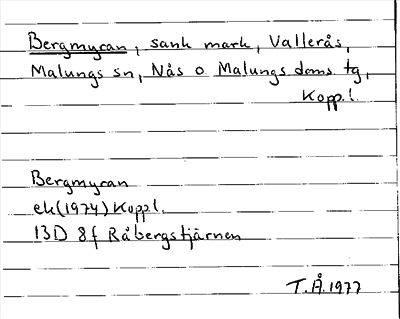 Bergmyran, sank mark, Vallerås,
Malungs sn, Nås o. Malungs doms. tg,
Kopp.l.
Bergmyran
ek(1974) Koppl.
13D 8f Råbergstjärnen
T.Å.1977